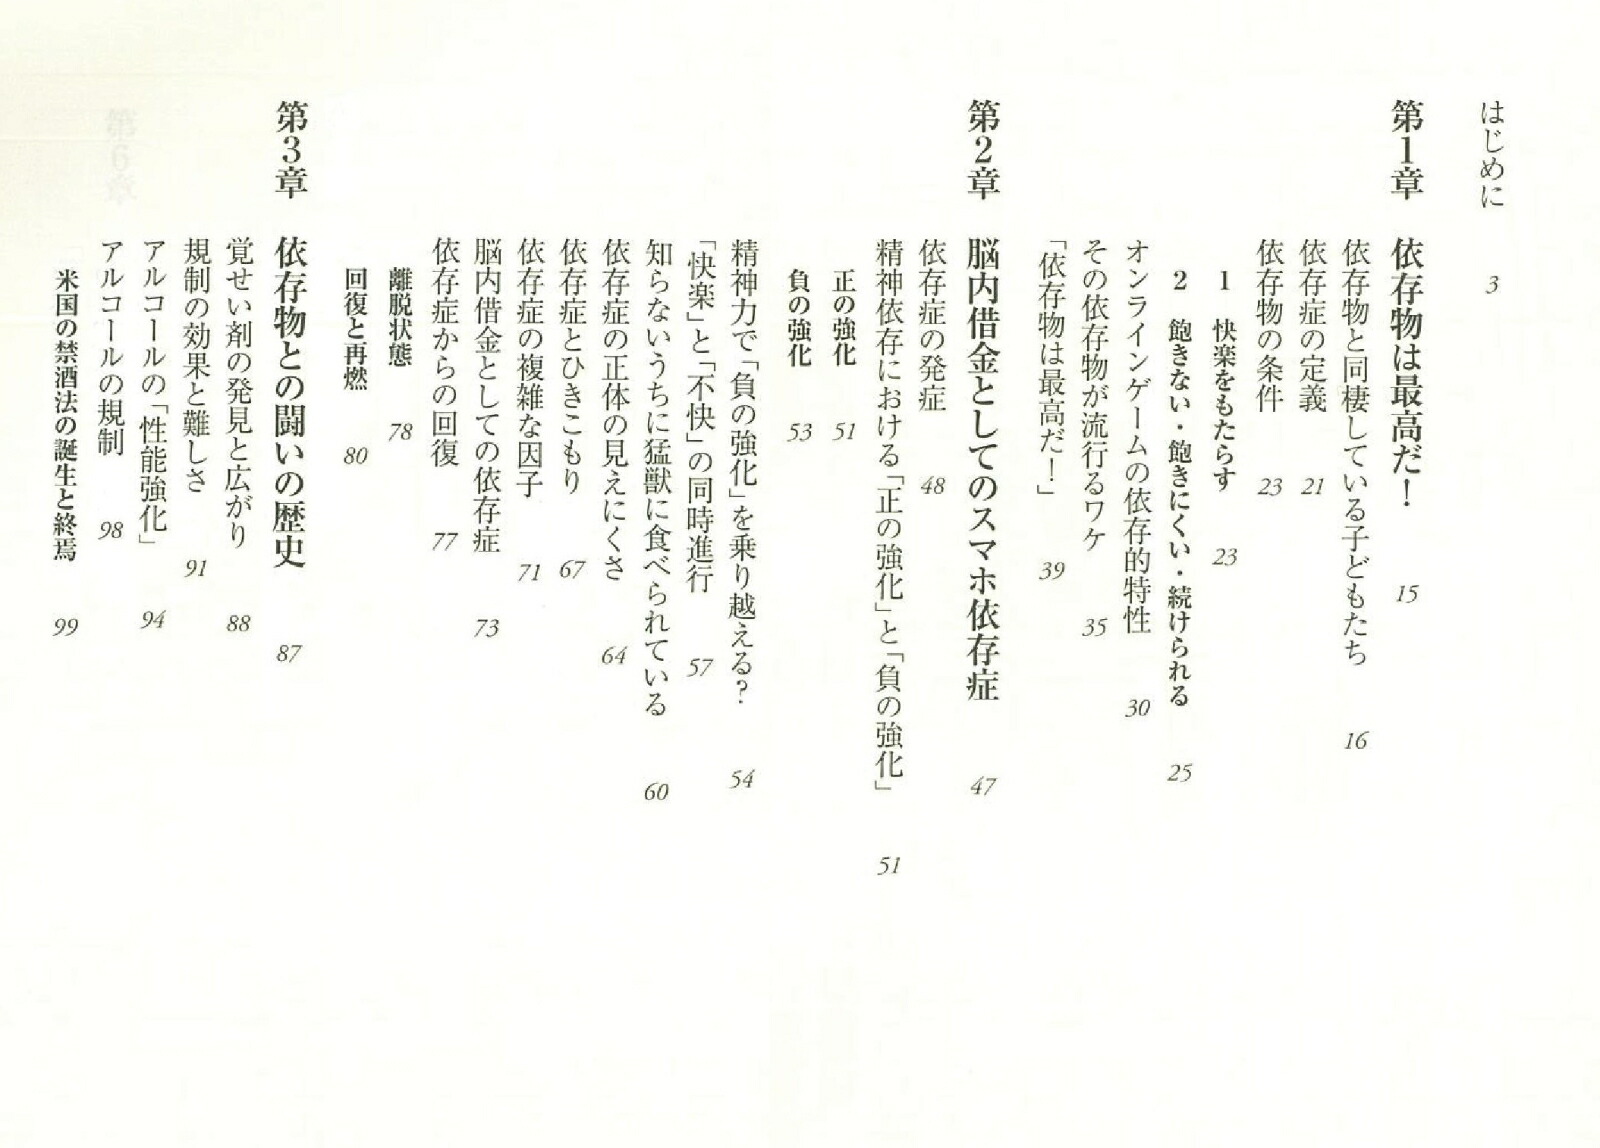 はじめに 3
第1章 依存物は最高だ！ 15
依存物と同棲している子どもたち 16
依存症の定義 21
依存物の条件 23
1 快楽をもたらす 23
2 飽きない・飽きにくい・続けられる 25
オンラインゲームの依存的特性 30
その依存物が流行るワケ 35
「依存物は最高だ！」 39
第2章 脳内借金としてのスマホ依存症 47
依存症の発症 48
精神依存における「正の強化」と「負の強化」 51
正の強化 51
負の強化 53
精神力で「負の強化」を乗り越える？ 54
「快楽」と「不快」の同時進行 57
知らないうちに猛獣に食べられている 60
依存症の正体の見えにくさ 64
依存症とひきこもり 67
依存症の複雑な因子 71
脳内借金としての依存症 73
依存症からの回復 77
離脱状態 78
回復と再燃 80
第3章 依存物との闘いの歴史 87
覚せい剤の発見と広がり 88
規制の効果と難しさ 91
アルコールの「性能強化」 94
アルコールの規制 98
米国の禁酒法の誕生と終焉 99
第6章